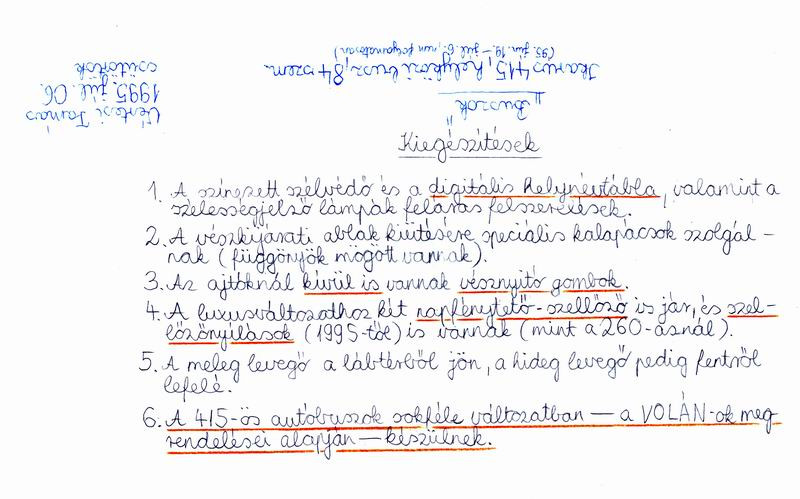 Vértesi Tamás
1995. júl. 06.
csütörtök
„Buszok"
Ikarus 415, helyközi busz, 84 szem.
(95. jún. 19. – júl. 6., nem folyamatosan)
Kiegészítések
1. A színezett szélvédő és a digitális helynévtábla, valamint a
szélességjelző lámpák feláras felszerelések.
2. A vészkijárati ablak kiütésére speciális kalapácsok szolgál-
nak (függönyök mögött vannak).
3. Az ajtóknál kívül is vannak vésznyitó gombok.
4. A luxusváltozathoz két napfénytető-szellőző is jár, és szel-
lőzőnyílások (1995-től) is vannak (mint a 260-asnál).
5. A meleg levegő a lábtérből jön, a hideg levegő pedig fentről
lefelé.
6. A 415-ös autóbuszok sokféle változatban — a VOLÁN-ok meg-
rendelései alapján — készülnek.